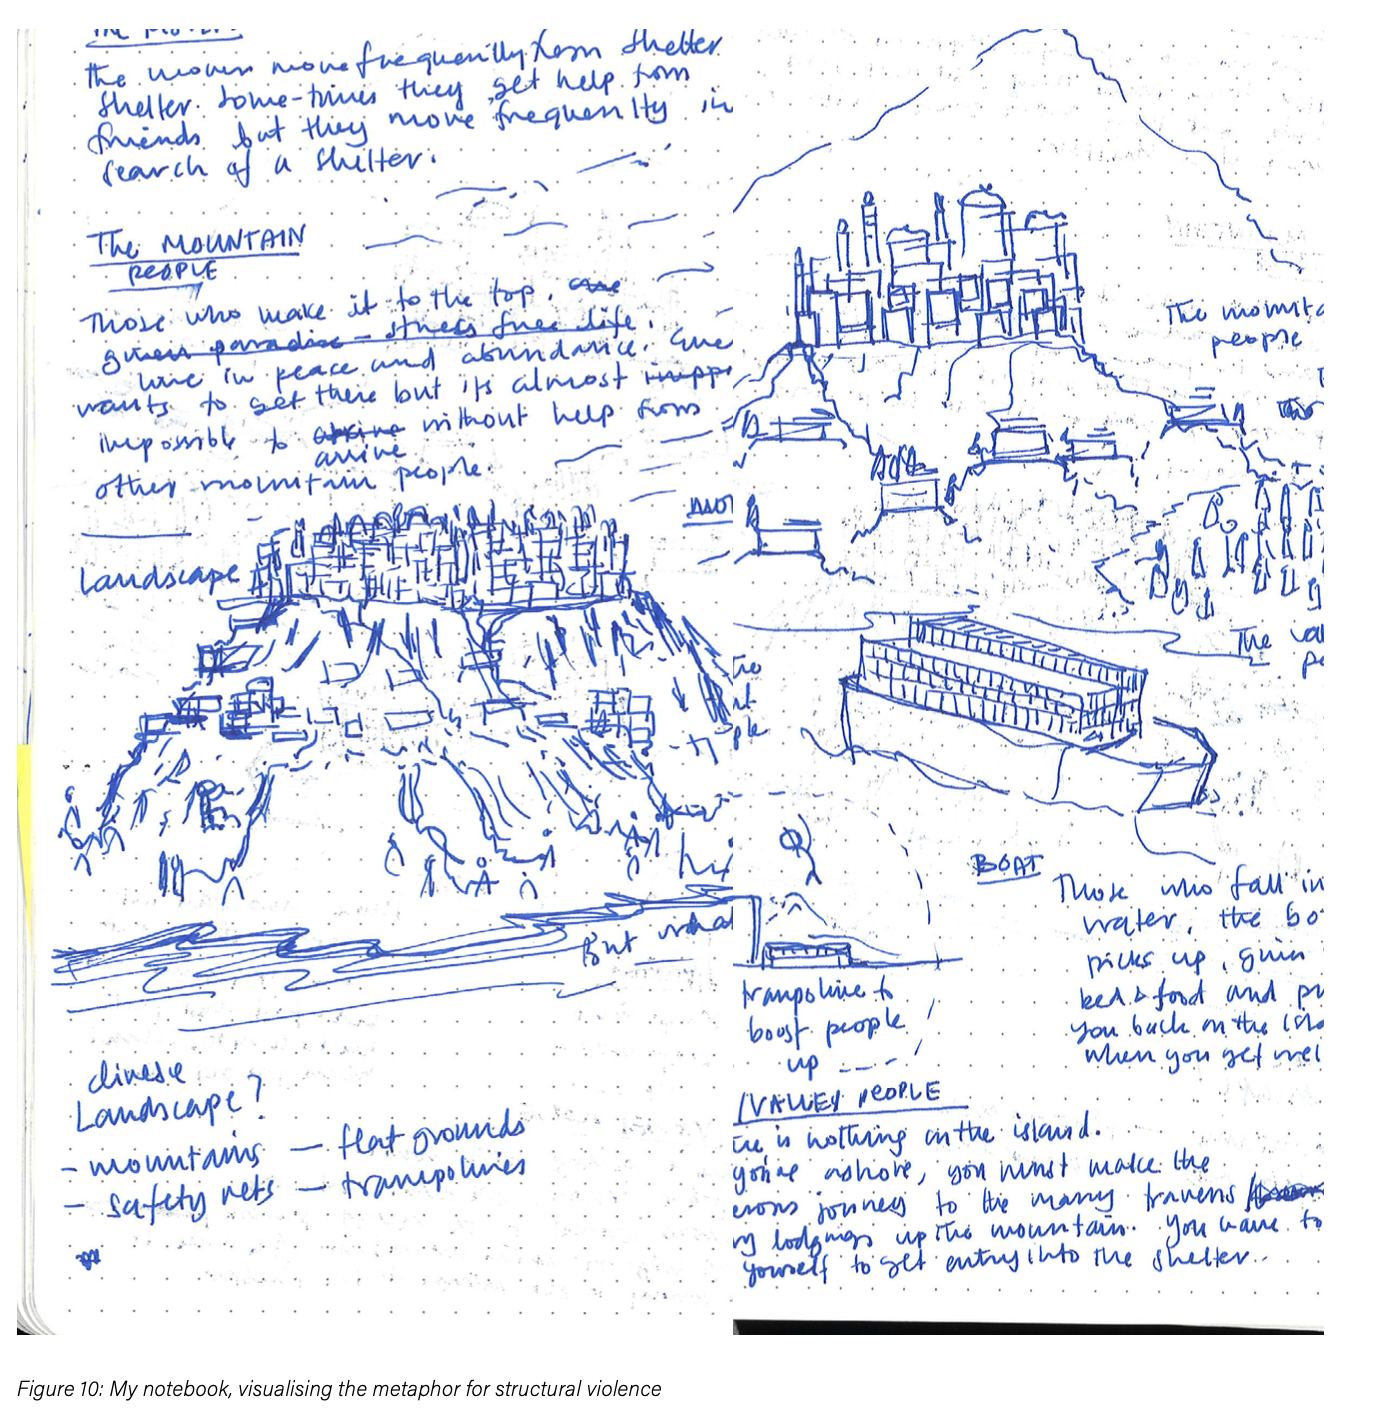 The movers move frequently from shelter
shelter. Some-times they get help from
friends but they move frequently in
search of a shelter.
The MOUNTAIN
PEOPLE
Those who make it to the top, are
given paradise - stress free life.
live in peace and abundance.
wants to get there but its almost
impossible to arrive without help from
arrive
other mountain people.
Landscape
But what
diverse
Landscape?
- mountains — flat grounds
- safety nets — trampolines
The mounta
people
The val
pe
BOAT
Those who fall in
water, the bo
picks up, givin
bed & food and pu
you back on the isla
when you get wel
trampoline to
boost people
up
VALLEY PEOPLE
is nothing on the island.
you're ashore, you must make the
erous journey to the many taverns
ry lodgings up the mountain. You have to
yourself to get entry into the shelter..
Figure 10: My notebook, visualising the metaphor for structural violence